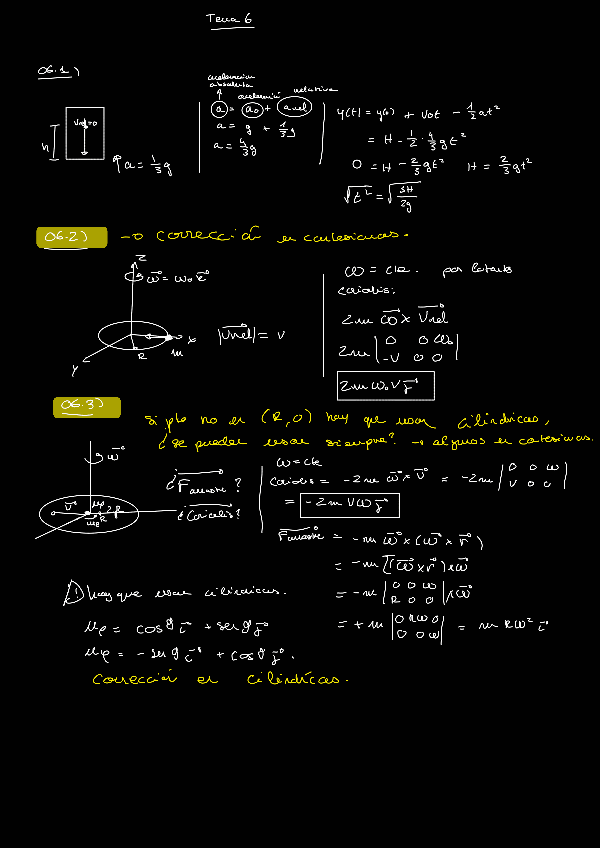 Tema 6
06.1)
aceleración absoluta
aceleración
relativa
a = a₀ + a rel
a = g + 1/3 g
a = 4/3 g
Vrel=0
h
↑ a = 1/3 g
y(t) = y(0) + v₀t - 1/2 at²
= H - 1/2 · 4/3 gt²
0 = H - 2/3 gt² H = 2/3 gt²
√t² = √3H/2g
06.2) → corrección en cartesianas.
z
ω = ω₀ k
x
m
R
y
|Vrel| = v
ω = cte. por tanto
coriolis:
2m ω × Vrel
2m | 0 0 ω₀ |
| -v 0 0 |
2m ω₀ v j
06.3)
si pto no en (R,0) hay que usar cilíndricas,
¿se pueden usar siempre? → algunos en cartesianas.
ω
v
R
¿Farrastre?
¿Coriolis?
ω = cte
Coriolis = -2m ω × v = -2m | 0 0 ω |
| v 0 0 |
= -2m vω j
Farrastre = -m ω × (ω × r)
= -m [(ω × r) × ω
= -m | 0 0 ω | × ω
| R 0 0 |
= +m | 0 Rω 0 | = m Rω² i
| 0 0 ω |
! hay que usar cilíndricas.
μρ = cosφ i + senφ j
μφ = - senφ i + cosφ j.
corrección en cilíndricas.